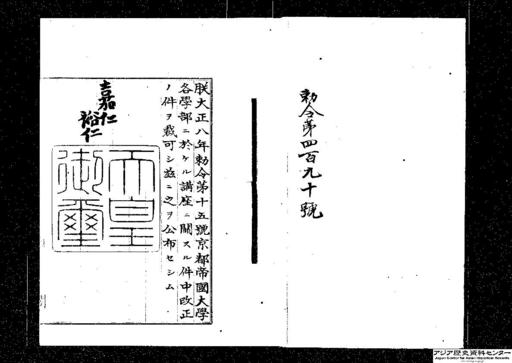 勅令第四百九十號
朕大正八年勅令第十五號京都帝國大學
各學部ニ於ケル講座ニ關スル件中改正
ノ件ヲ裁可シ茲ニ之ヲ公布セシム
嘉仁
裕仁
天皇
御璽
アジア歴史資料センター
Japan Center for Asian Historical Records